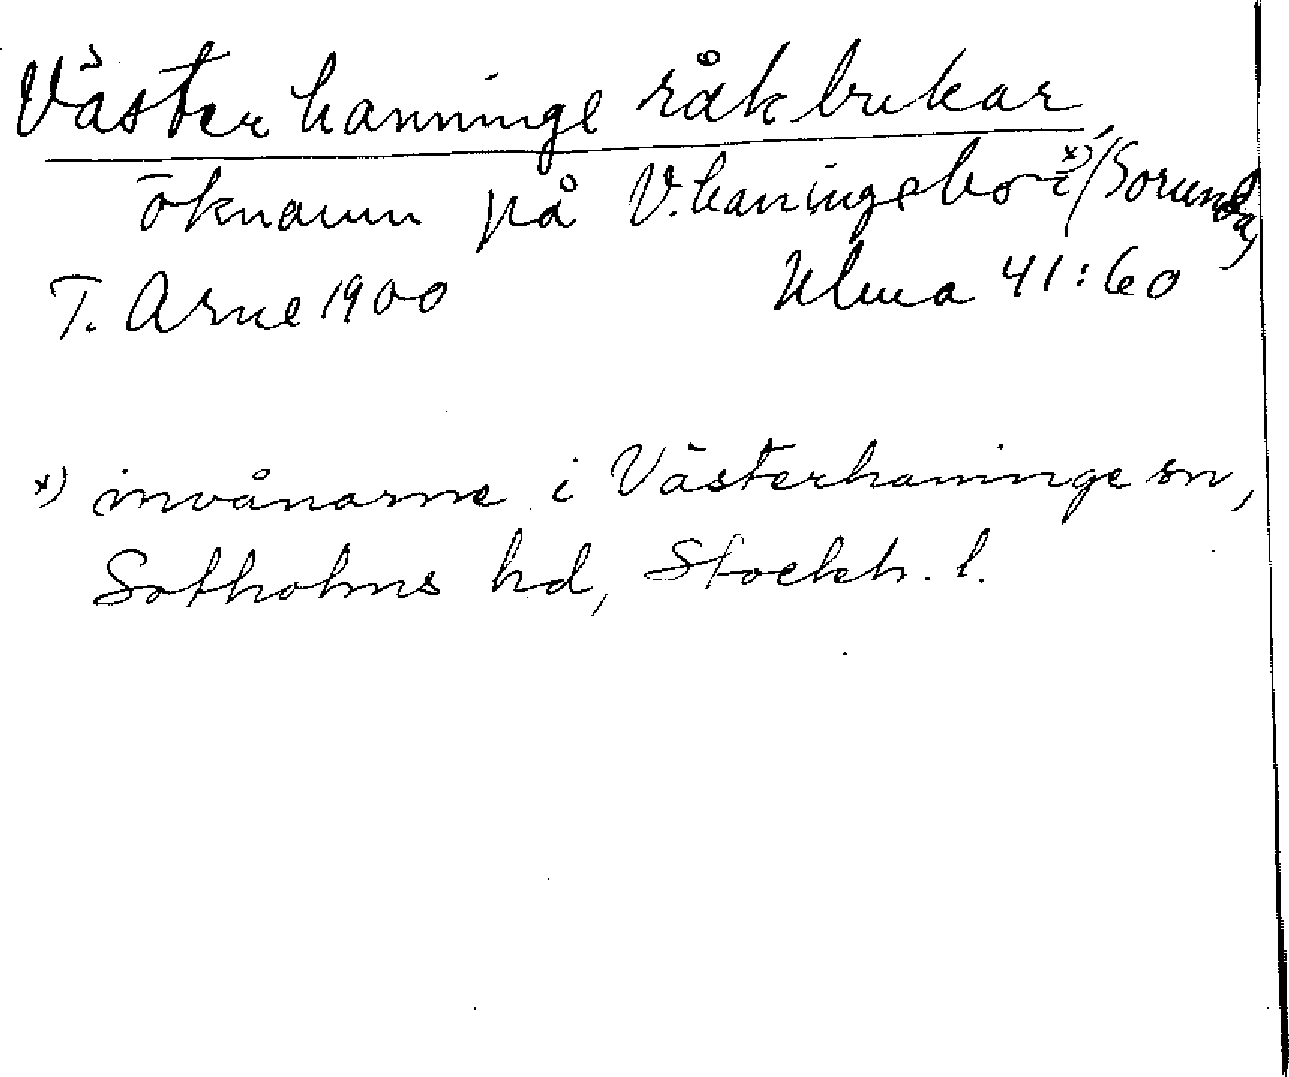 Västerhanninge råkbukar,
öknamn på V.haningebor x) (Sorunda)
T. Arne 1900 Ulma 41:60
x) invånarne i Västerhaninge sn,
Sotholms hd, Stockh. l.